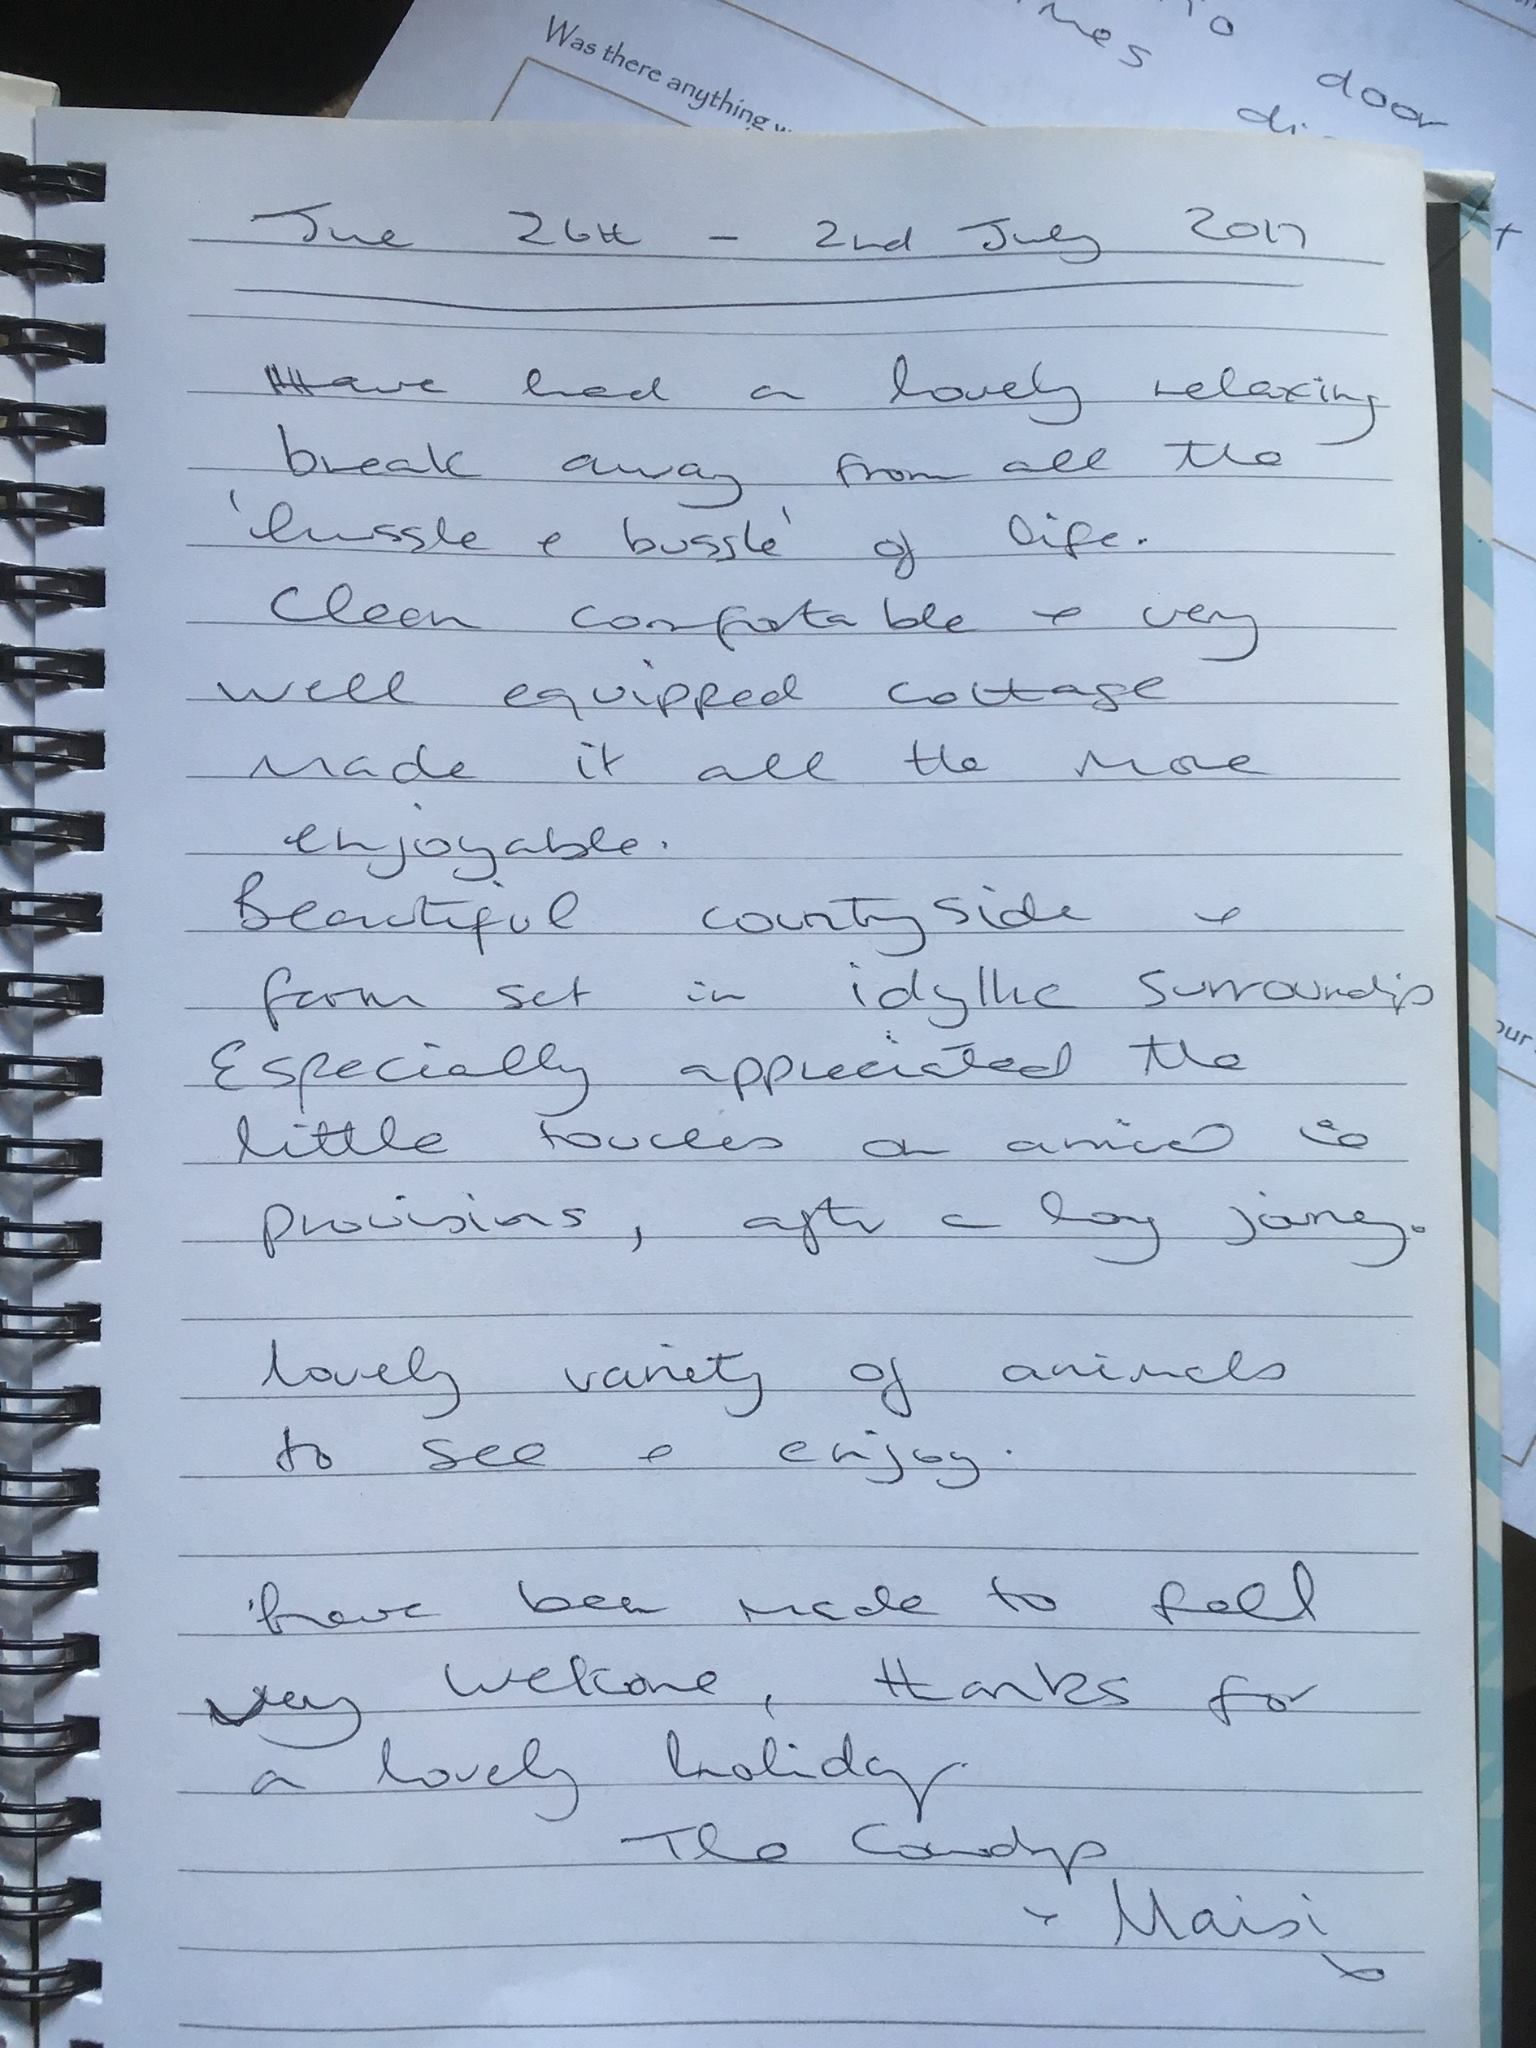 Was there anything
door
June 26th - 2nd July 2017
Have had a lovely relaxing
break away from all the
'hussle & bussle' of life.
Clean comfortable & very
well equipped cottage
made it all the more
enjoyable.
Beautiful countyside &
farm set in idyllic surroundings
Especially appreciated the
little touches on arrival ie
provisions, after a long journey.
lovely variety of animals
to see & enjoy.
have been made to feel
very welcome, thanks for
a lovely holiday.
The
& Maisi